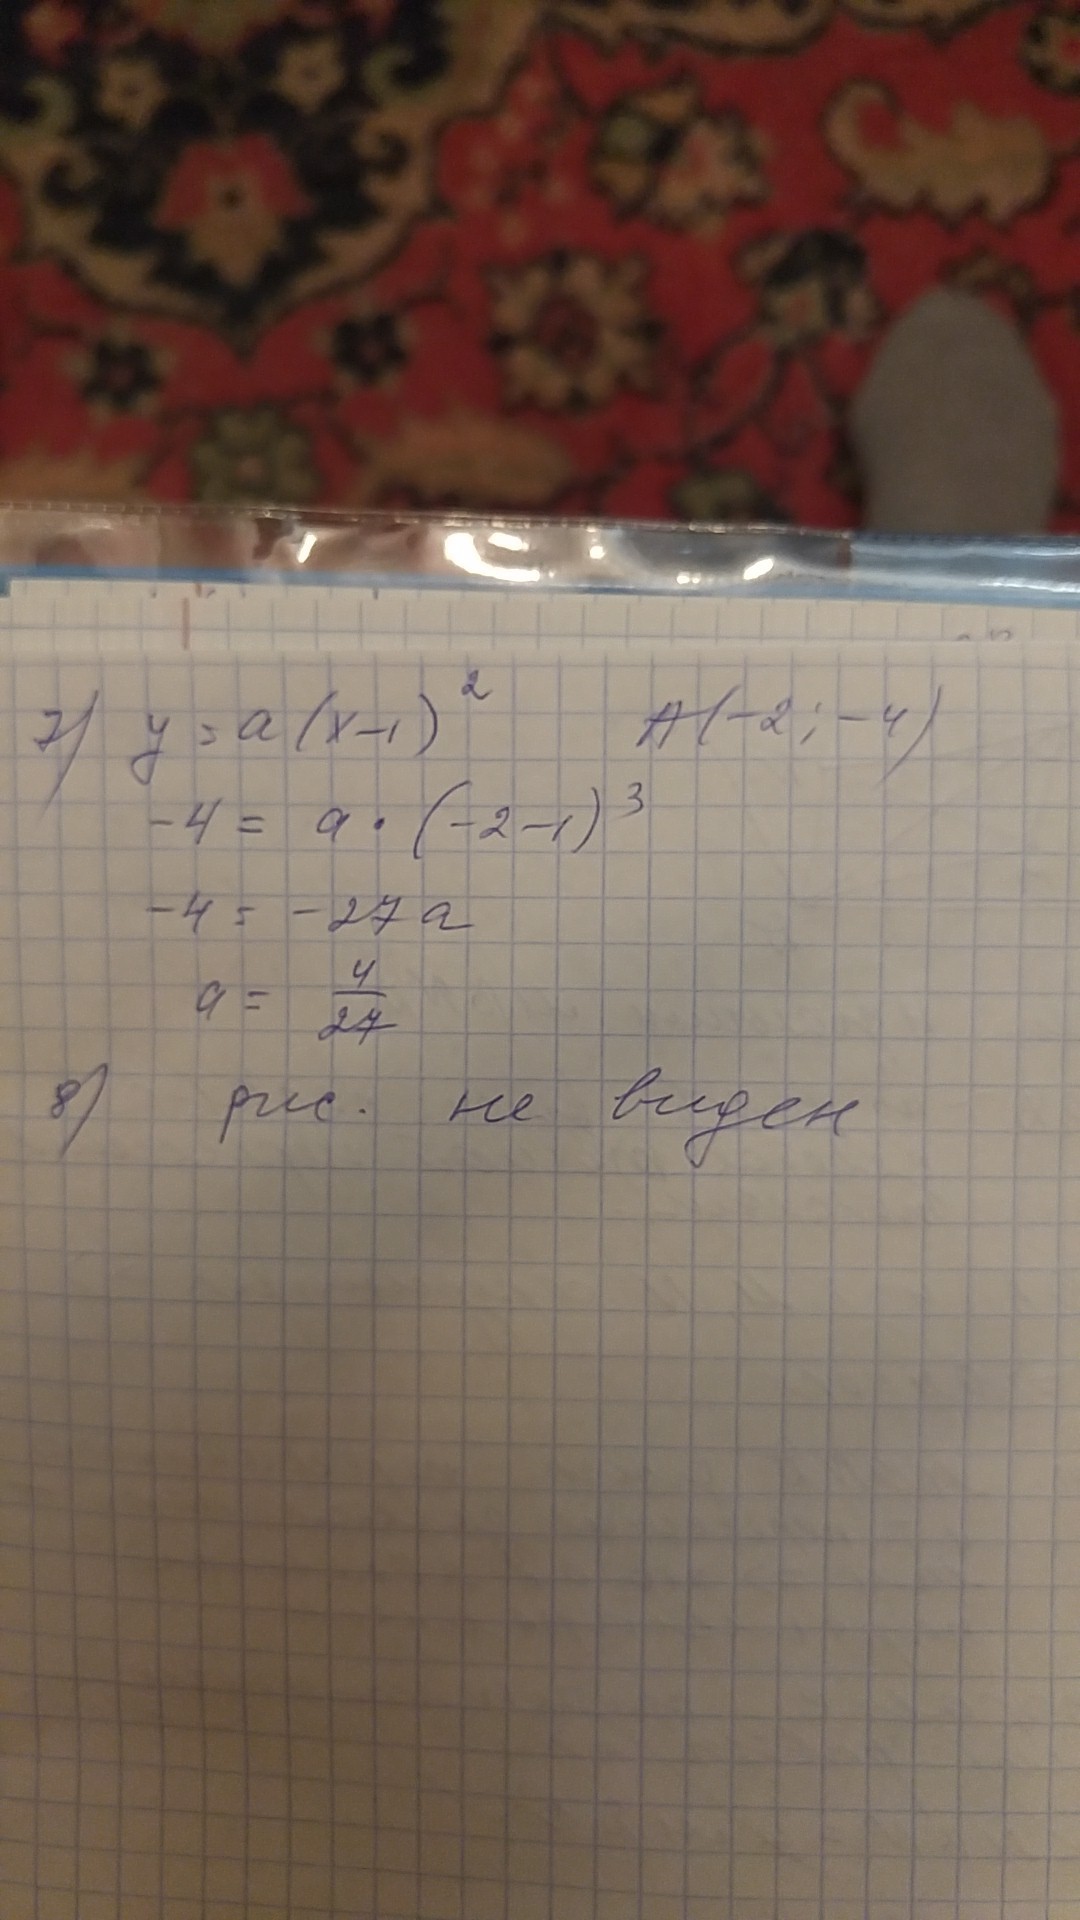 7) y = a(x-1)² A(-2; -4)
-4 = a · (-2-1)³
-4 = -27a
a = 4/27
8) рис. не виден